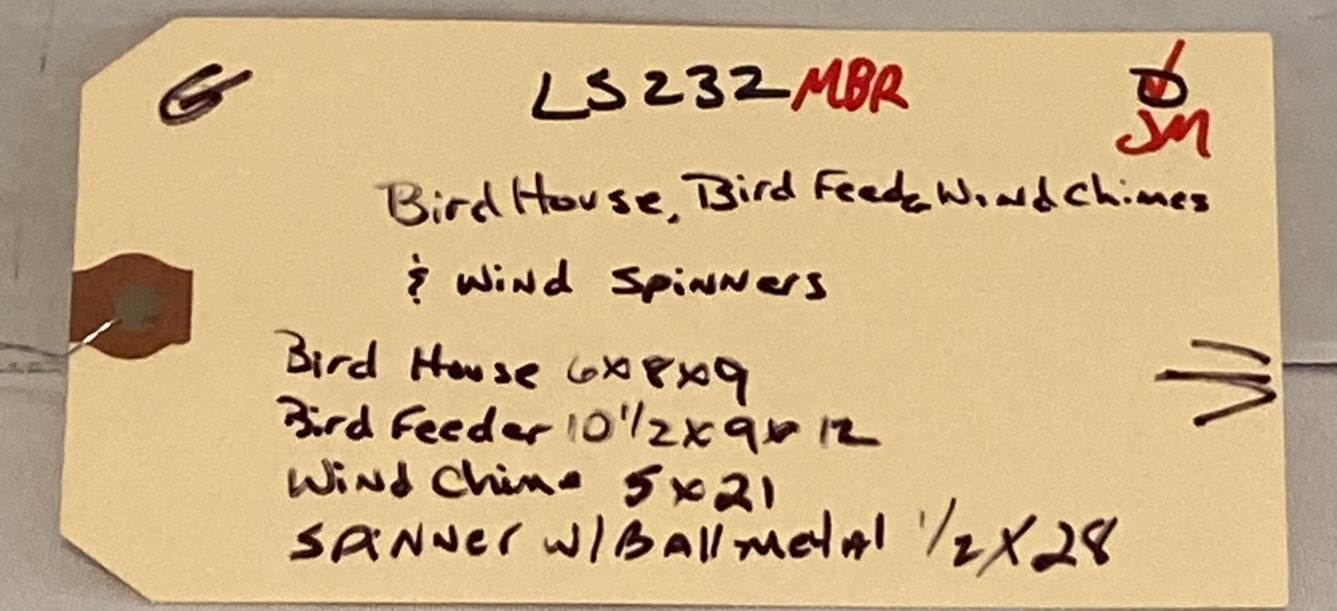 G LS232 MBR
JM
Bird House, Bird Feed& Wind Chimes
& Wind Spinners
Bird House 6x8x9
Bird Feeder 10 1/2 x 9 x 12
Wind Chime 5 x 21
Spinner w/ Ball metal 1/2 X 28